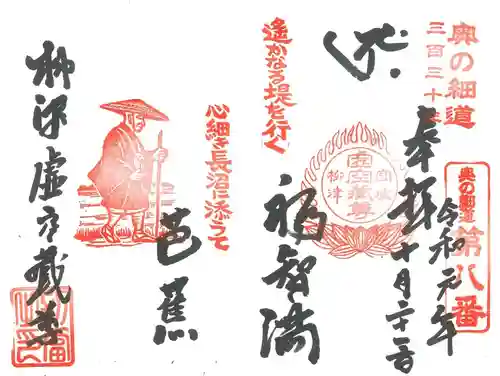 奥の細道
三百三十年
奥の細道
第八番
奉拝
令和元年
十月二十二日
虚空蔵尊
柳津
福智満
遙かなる堤を行く
心細き長沼に添うて
芭蕉
柳津虚空蔵尊